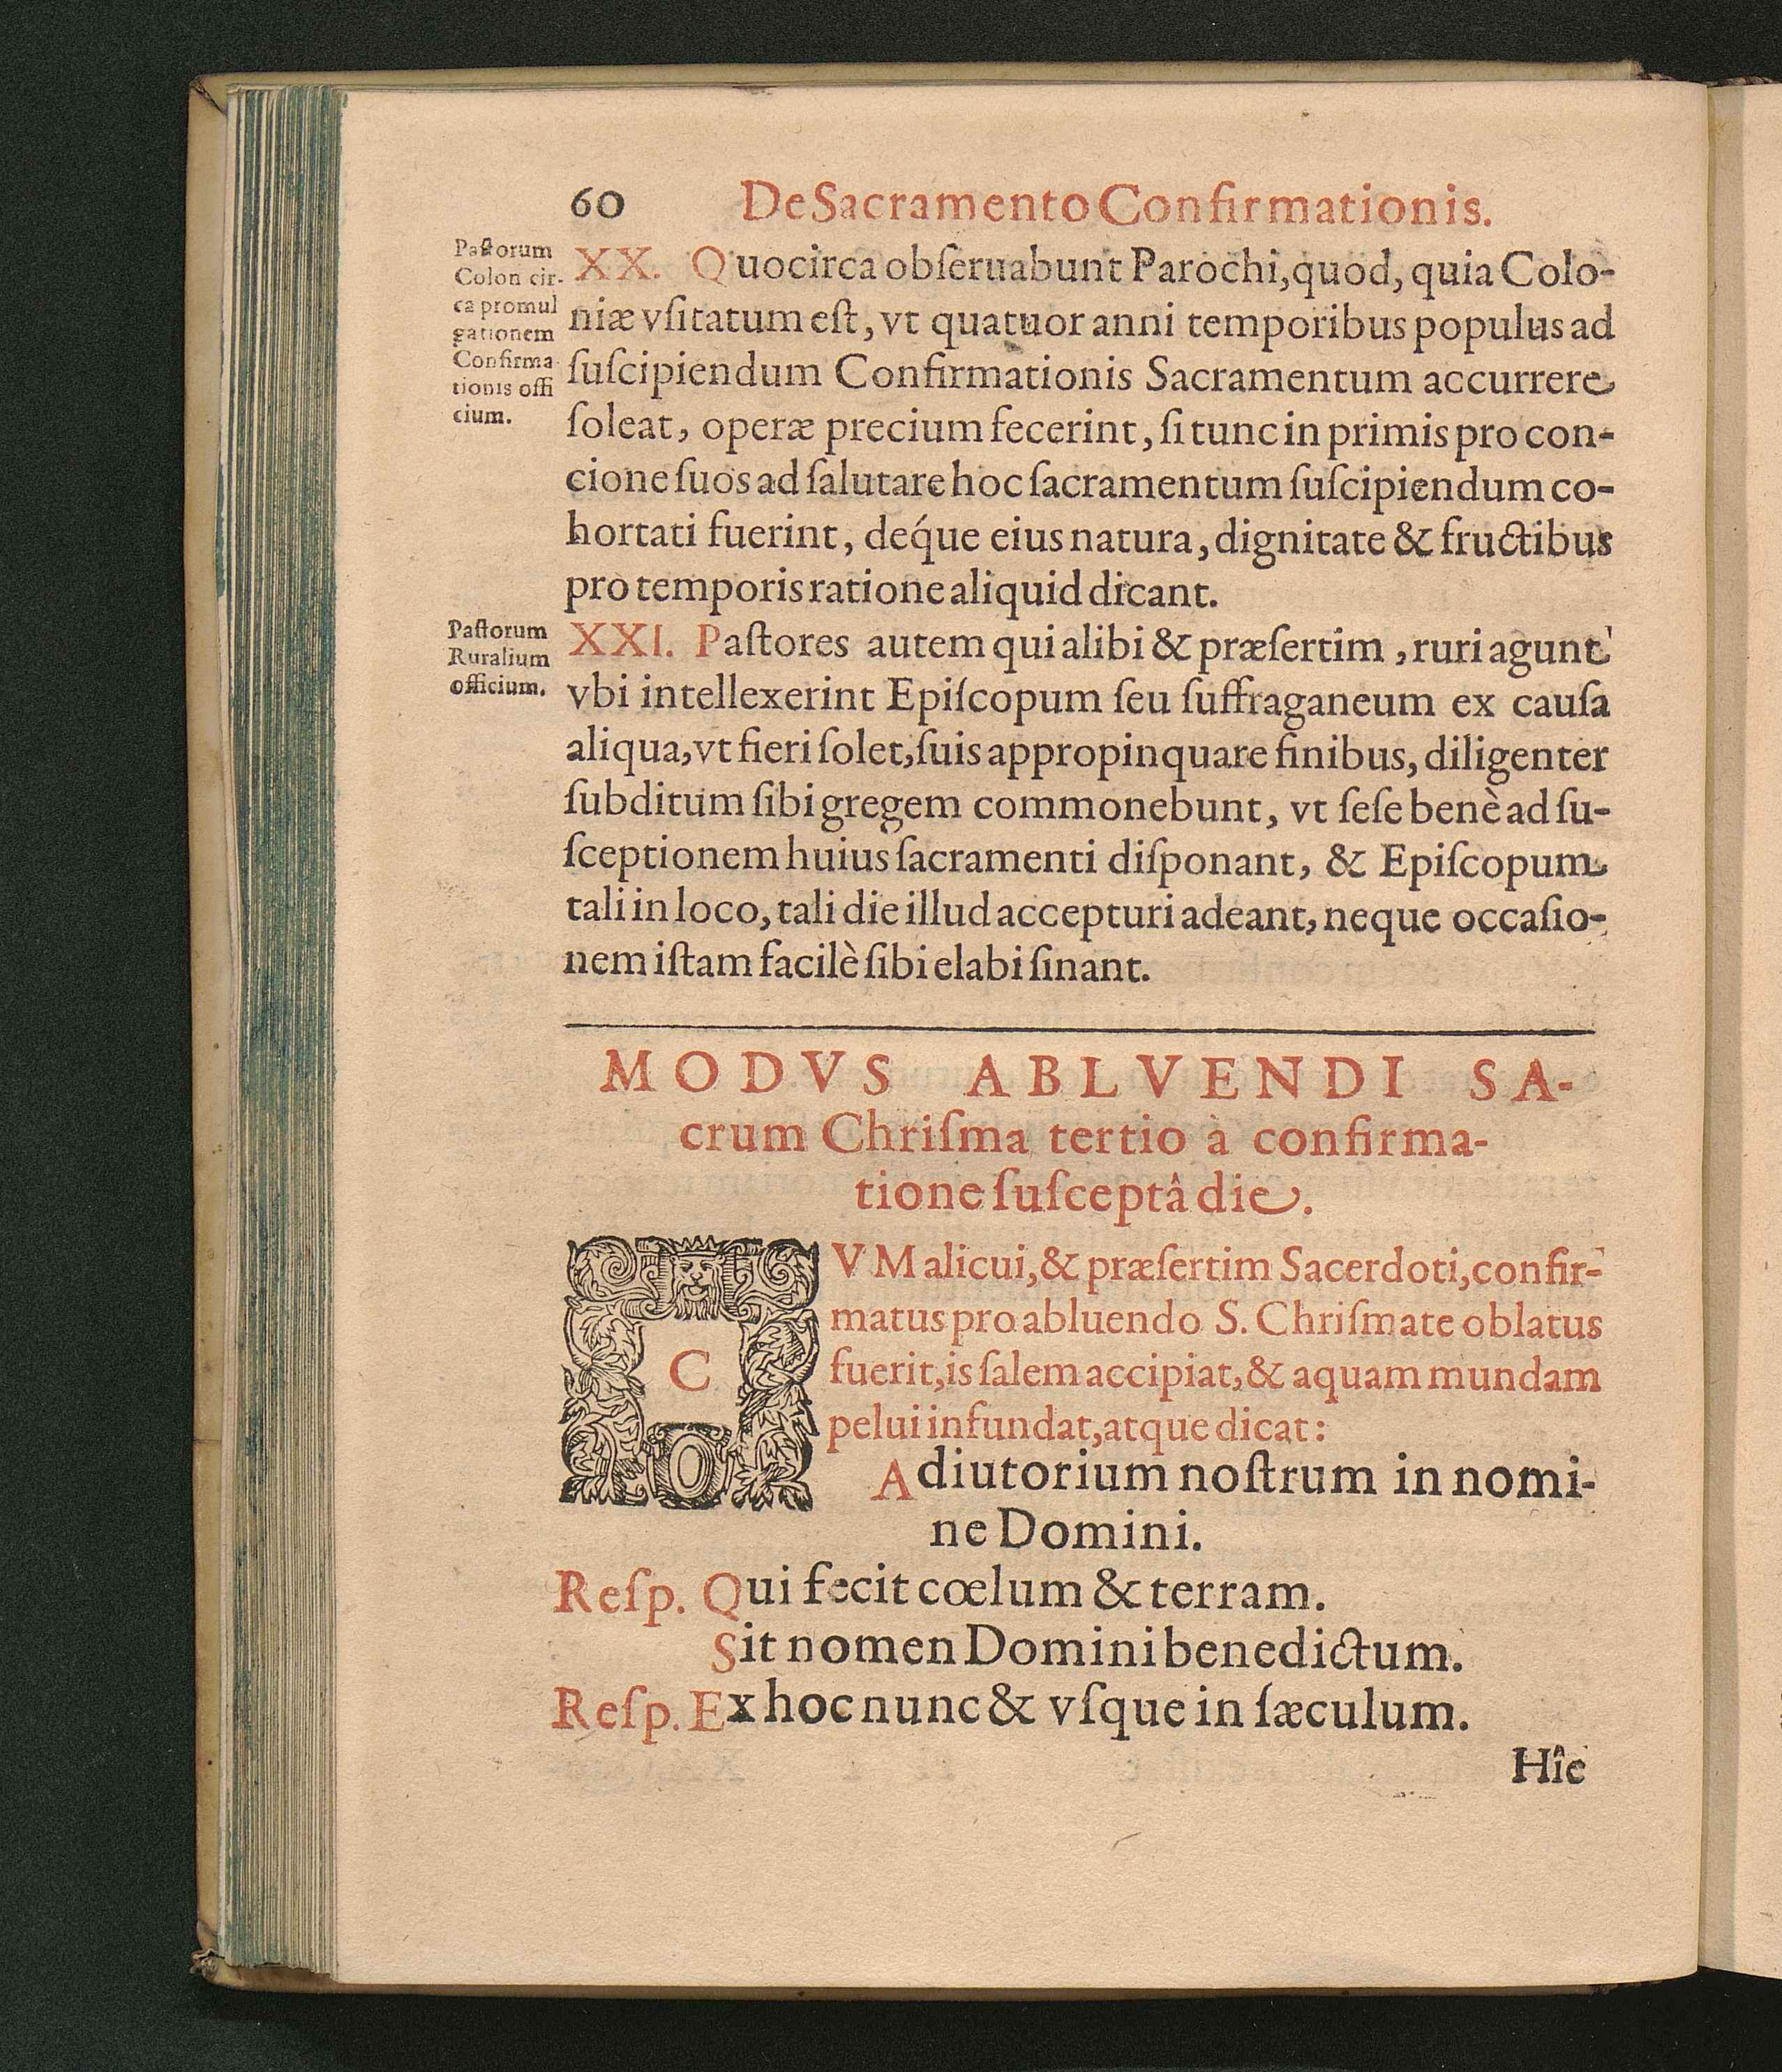 60 De Sacramento Confirmationis.
Paſtorum
Colon cir-
ca promul
gationem
Confirma-
tionis offi
cium.
XX. Quocirca obſeruabunt Parochi, quod, quia Colo-
niæ vſitatum eſt, vt quatuor anni temporibus populus ad
ſuſcipiendum Confirmationis Sacramentum accurrere
ſoleat, operæ precium fecerint, ſi tunc in primis pro con-
cione ſuos ad ſalutare hoc ſacramentum ſuſcipiendum co-
hortati fuerint, deq́ue eius natura, dignitate & fructibus
pro temporis ratione aliquid dicant.
Paſtorum
Ruralium
officium.
XXI. Paſtores autem qui alibi & præſertim, ruri agunt
vbi intellexerint Epiſcopum ſeu ſuffraganeum ex cauſa
aliqua, vt fieri ſolet, ſuis appropinquare finibus, diligenter
ſubditum ſibi gregem commonebunt, vt ſeſe benè ad ſu-
ſceptionem huius ſacramenti diſponant, & Epiſcopum
tali in loco, tali die illud accepturi adeant, neque occaſio-
nem iſtam facilè ſibi elabi ſinant.
MODVS ABLVENDI SA-
crum Chriſma tertio à confirma-
tione ſuſceptâ die.
CVM alicui, & præſertim Sacerdoti, confir-
matus pro abluendo S. Chriſmate oblatus
fuerit, is ſalem accipiat, & aquam mundam
pelui infundat, atque dicat:
Adiutorium noſtrum in nomi-
ne Domini.
Reſp. Qui fecit cœlum & terram.
Sit nomen Domini benedictum.
Reſp. Ex hoc nunc & vſque in ſæculum.
Hîc